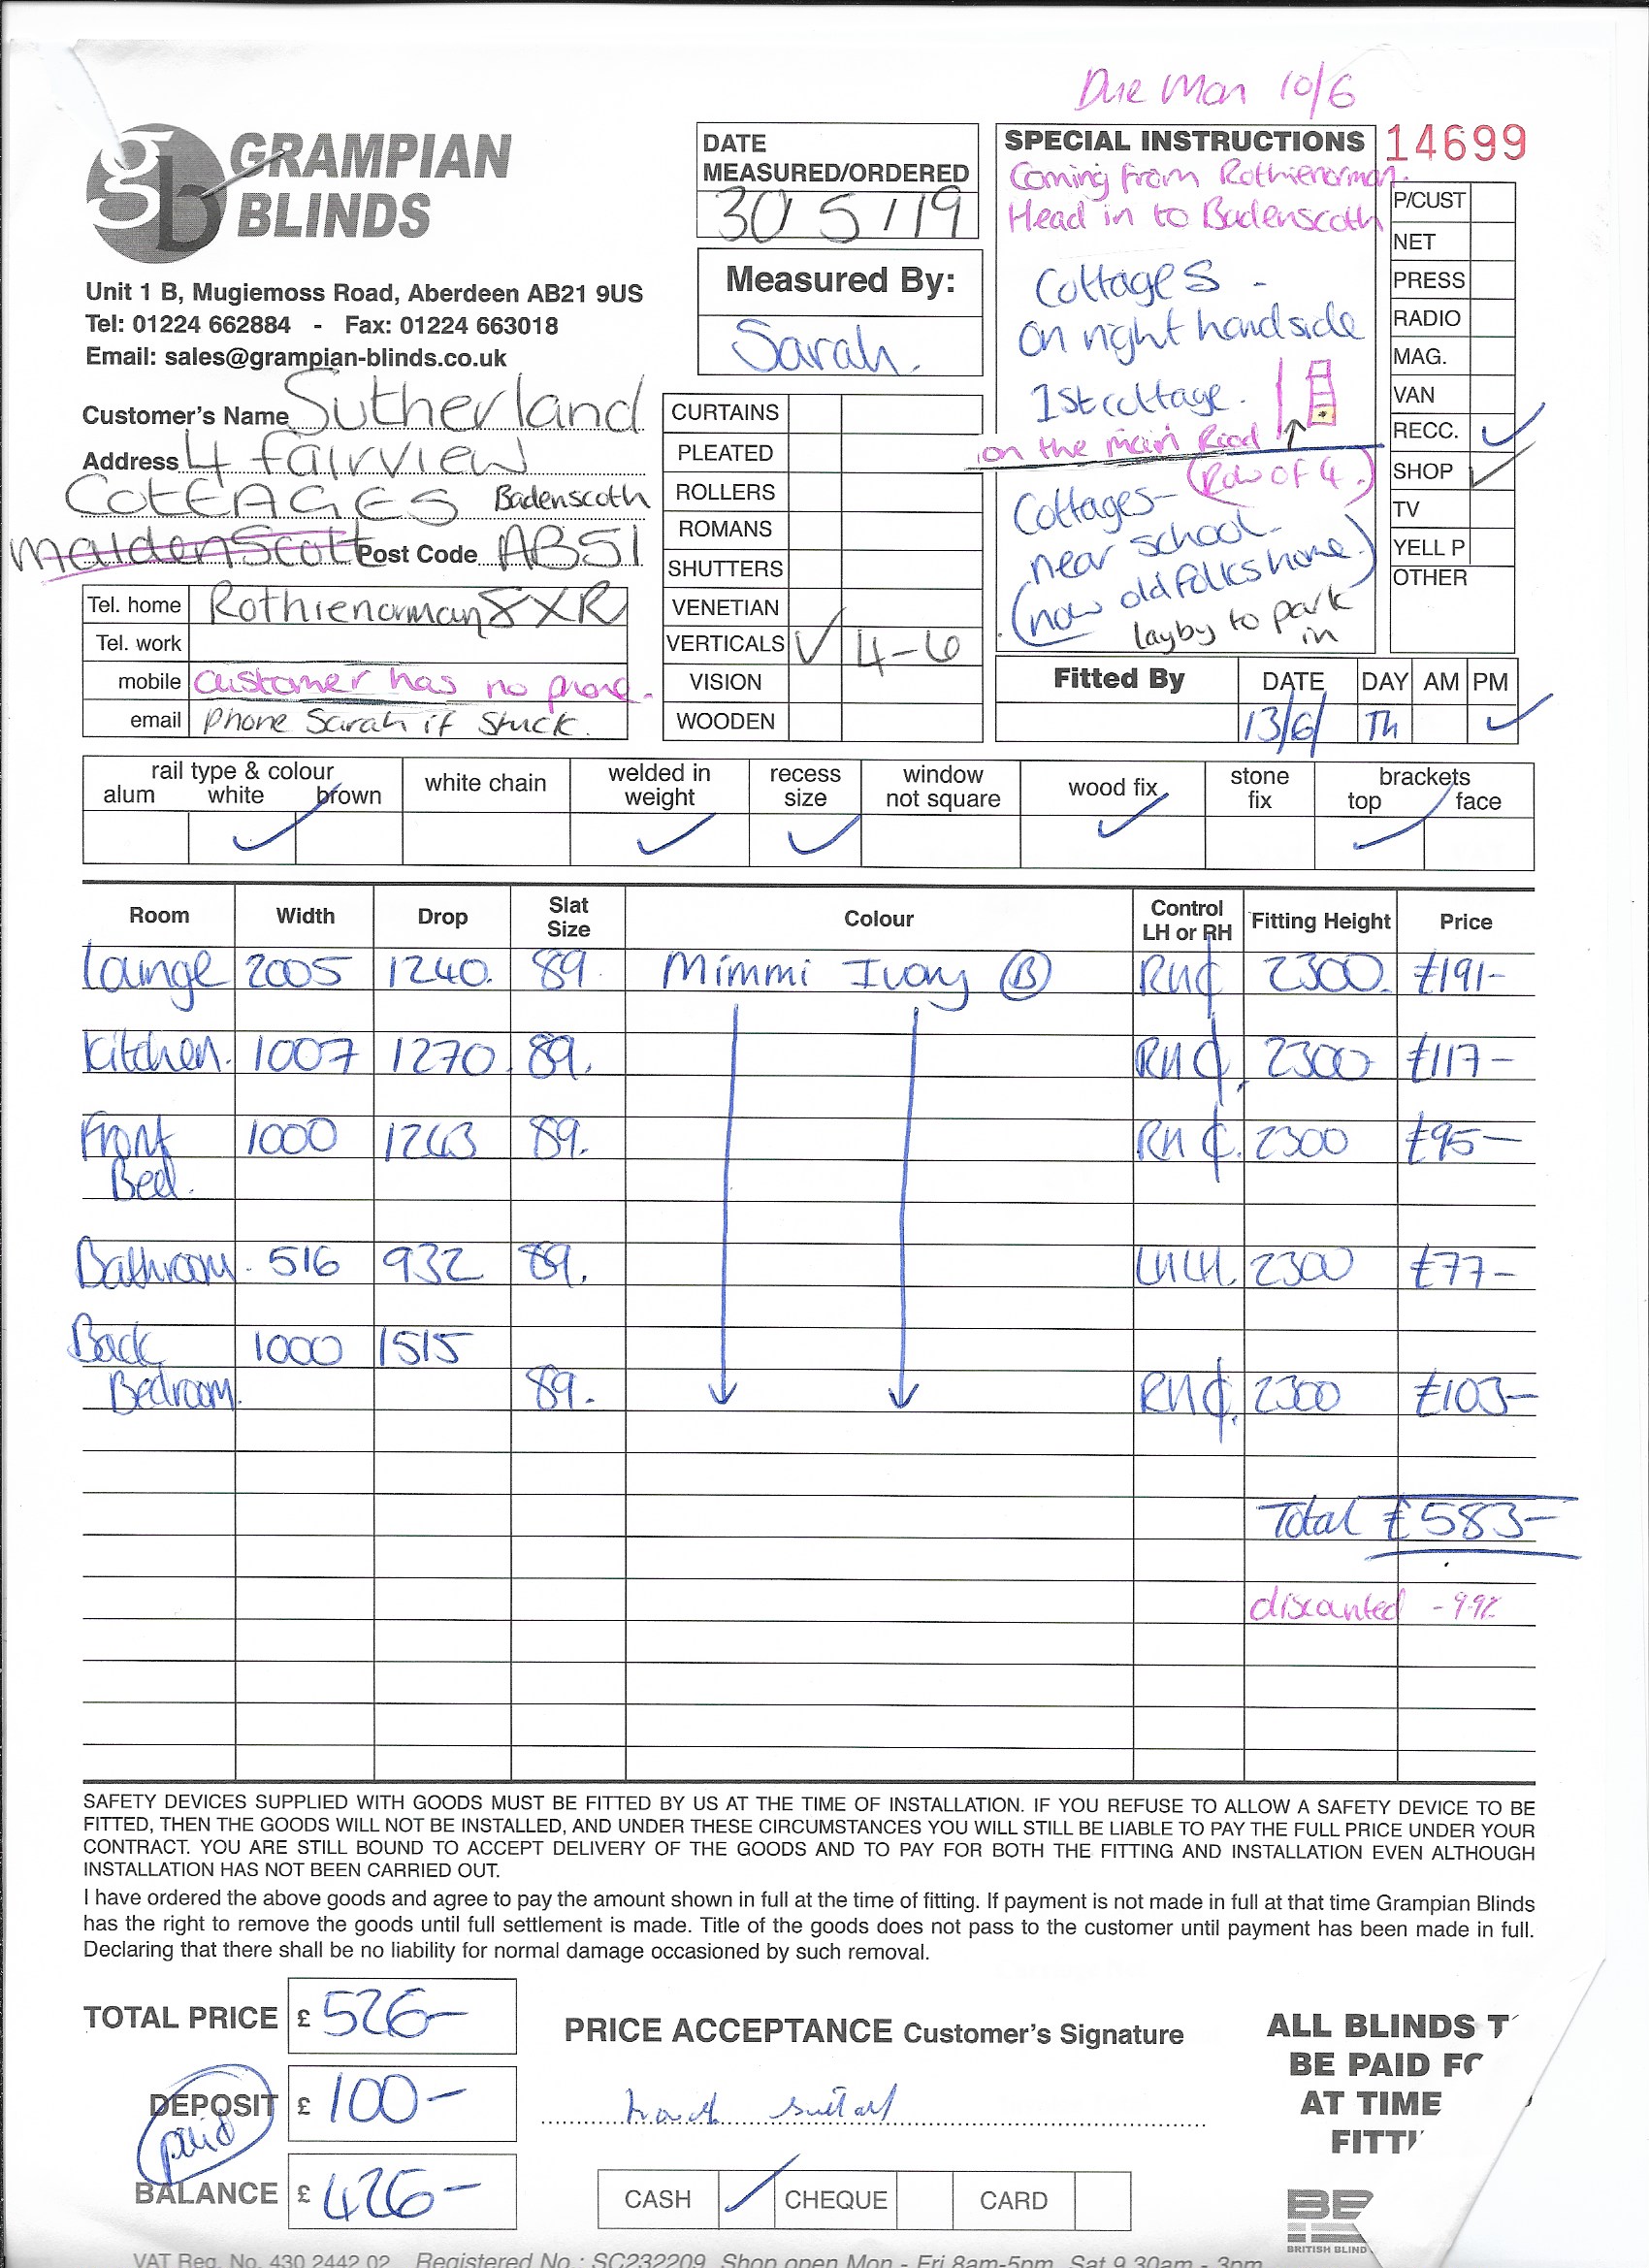 Due Mon 10/6
gb GRAMPIAN
BLINDS
Unit 1 B, Mugiemoss Road, Aberdeen AB21 9US
Tel: 01224 662884 - Fax: 01224 663018
Email: sales@grampian-blinds.co.uk
DATE
MEASURED/ORDERED
30/5/19
Measured By:
Sarah.
SPECIAL INSTRUCTIONS
Coming from Rothienorman.
Head in to Badenscoth
Cottages -
on right hand side
1st cottage.
on the main Road
(Row of 4.)
Cottages-
near school-
(now old folks home.)
layby to park
in
14699
P/CUST
NET
PRESS
RADIO
MAG.
VAN
RECC. ✓
SHOP ✓
TV
YELL P
OTHER
Customer's Name Sutherland
Address 4 fairview
COTTAGES Badenscoth
Maidenscott Post Code AB51
Tel. home Rothienorman 8XR
Tel. work
mobile customer has no phone.
email phone Sarah if stuck.
CURTAINS
PLEATED
ROLLERS
ROMANS
SHUTTERS
VENETIAN
VERTICALS ✓ 4-6
VISION
WOODEN
Fitted By DATE DAY AM PM
13/6/ Th ✓
rail type & colour
alum white brown
white chain
welded in
weight
recess
size
window
not square
wood fix
stone
fix
brackets
top face
✓ ✓ ✓ ✓ ✓
Room Width Drop Slat Size Colour Control LH or RH Fitting Height Price
Lounge 2005 1240. 89 Mimmi Ivory (B) RH₵ 2300. £191-
Kitchen. 1007 1270. 89. RH₵. 2300 £117-
Front 1000 1263 89. RH₵. 2300 £95-
Bed.
Bathroom. 516 932 89. LHLH. 2300 £77-
Back 1000 1515
Bedroom. 89. RH₵. 2300 £103-
Total £583-
discounted
SAFETY DEVICES SUPPLIED WITH GOODS MUST BE FITTED BY US AT THE TIME OF INSTALLATION. IF YOU REFUSE TO ALLOW A SAFETY DEVICE TO BE
FITTED, THEN THE GOODS WILL NOT BE INSTALLED, AND UNDER THESE CIRCUMSTANCES YOU WILL STILL BE LIABLE TO PAY THE FULL PRICE UNDER YOUR
CONTRACT. YOU ARE STILL BOUND TO ACCEPT DELIVERY OF THE GOODS AND TO PAY FOR BOTH THE FITTING AND INSTALLATION EVEN ALTHOUGH
INSTALLATION HAS NOT BEEN CARRIED OUT.
I have ordered the above goods and agree to pay the amount shown in full at the time of fitting. If payment is not made in full at that time Grampian Blinds
has the right to remove the goods until full settlement is made. Title of the goods does not pass to the customer until payment has been made in full.
Declaring that there shall be no liability for normal damage occasioned by such removal.
TOTAL PRICE £ 526-
DEPOSIT £ 100-
paid
BALANCE £ 426-
PRICE ACCEPTANCE Customer's Signature
CASH ✓ CHEQUE CARD
ALL BLINDS T
BE PAID FO
AT TIME
FITTI
BRITISH BLIND
VAT Reg. No. 430 2442 02 Registered No.: SC232209 Shop open Mon - Fri 8am-5pm Sat 9.30am - 3pm